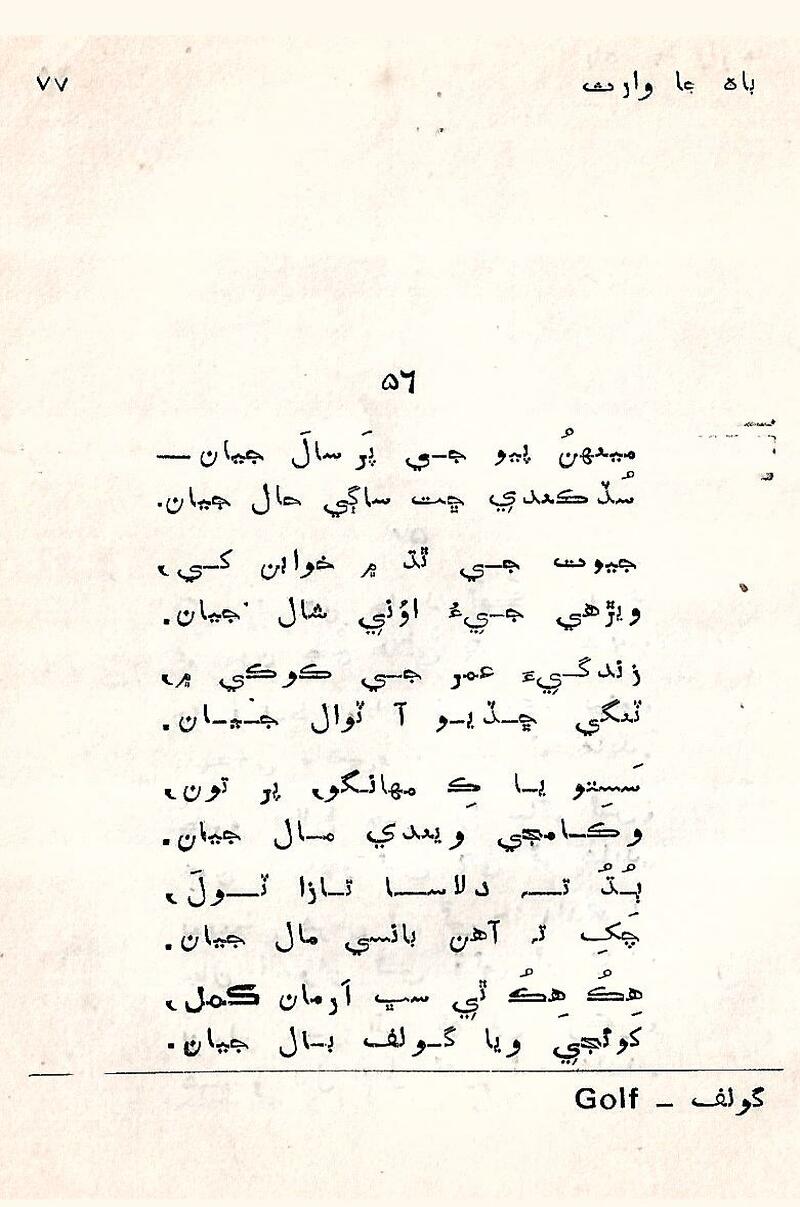 باهہ جا وارث
٧٧
٥٦
مينهنُ پيو جي پَر سالَ جيان —
سُڏڪندي چت ساڳي حال جيان.
جيوت جي ٿڌ ۾ خوابن کي،
ويڙهي جيءُ اوُني شال جيان.
زندگيءَ عمر جي ڪوڪي ۾،
ٽنگي ڇڏيو آ ٽوال جيان.
سَسِتو يا ڪِ مهانگو، پر تون،
وڪامجي ويندي مال جيان.
ٻُڌُ تہ دلاسا تازا ٽولَ،
چَکِ تہ آهن بانسي مال جيان.
هِڪُ هِڪُ ٿي سڀ اَرمان ڪمل،
کوئجي ويا گولف بال جيان.
گولف – Golf